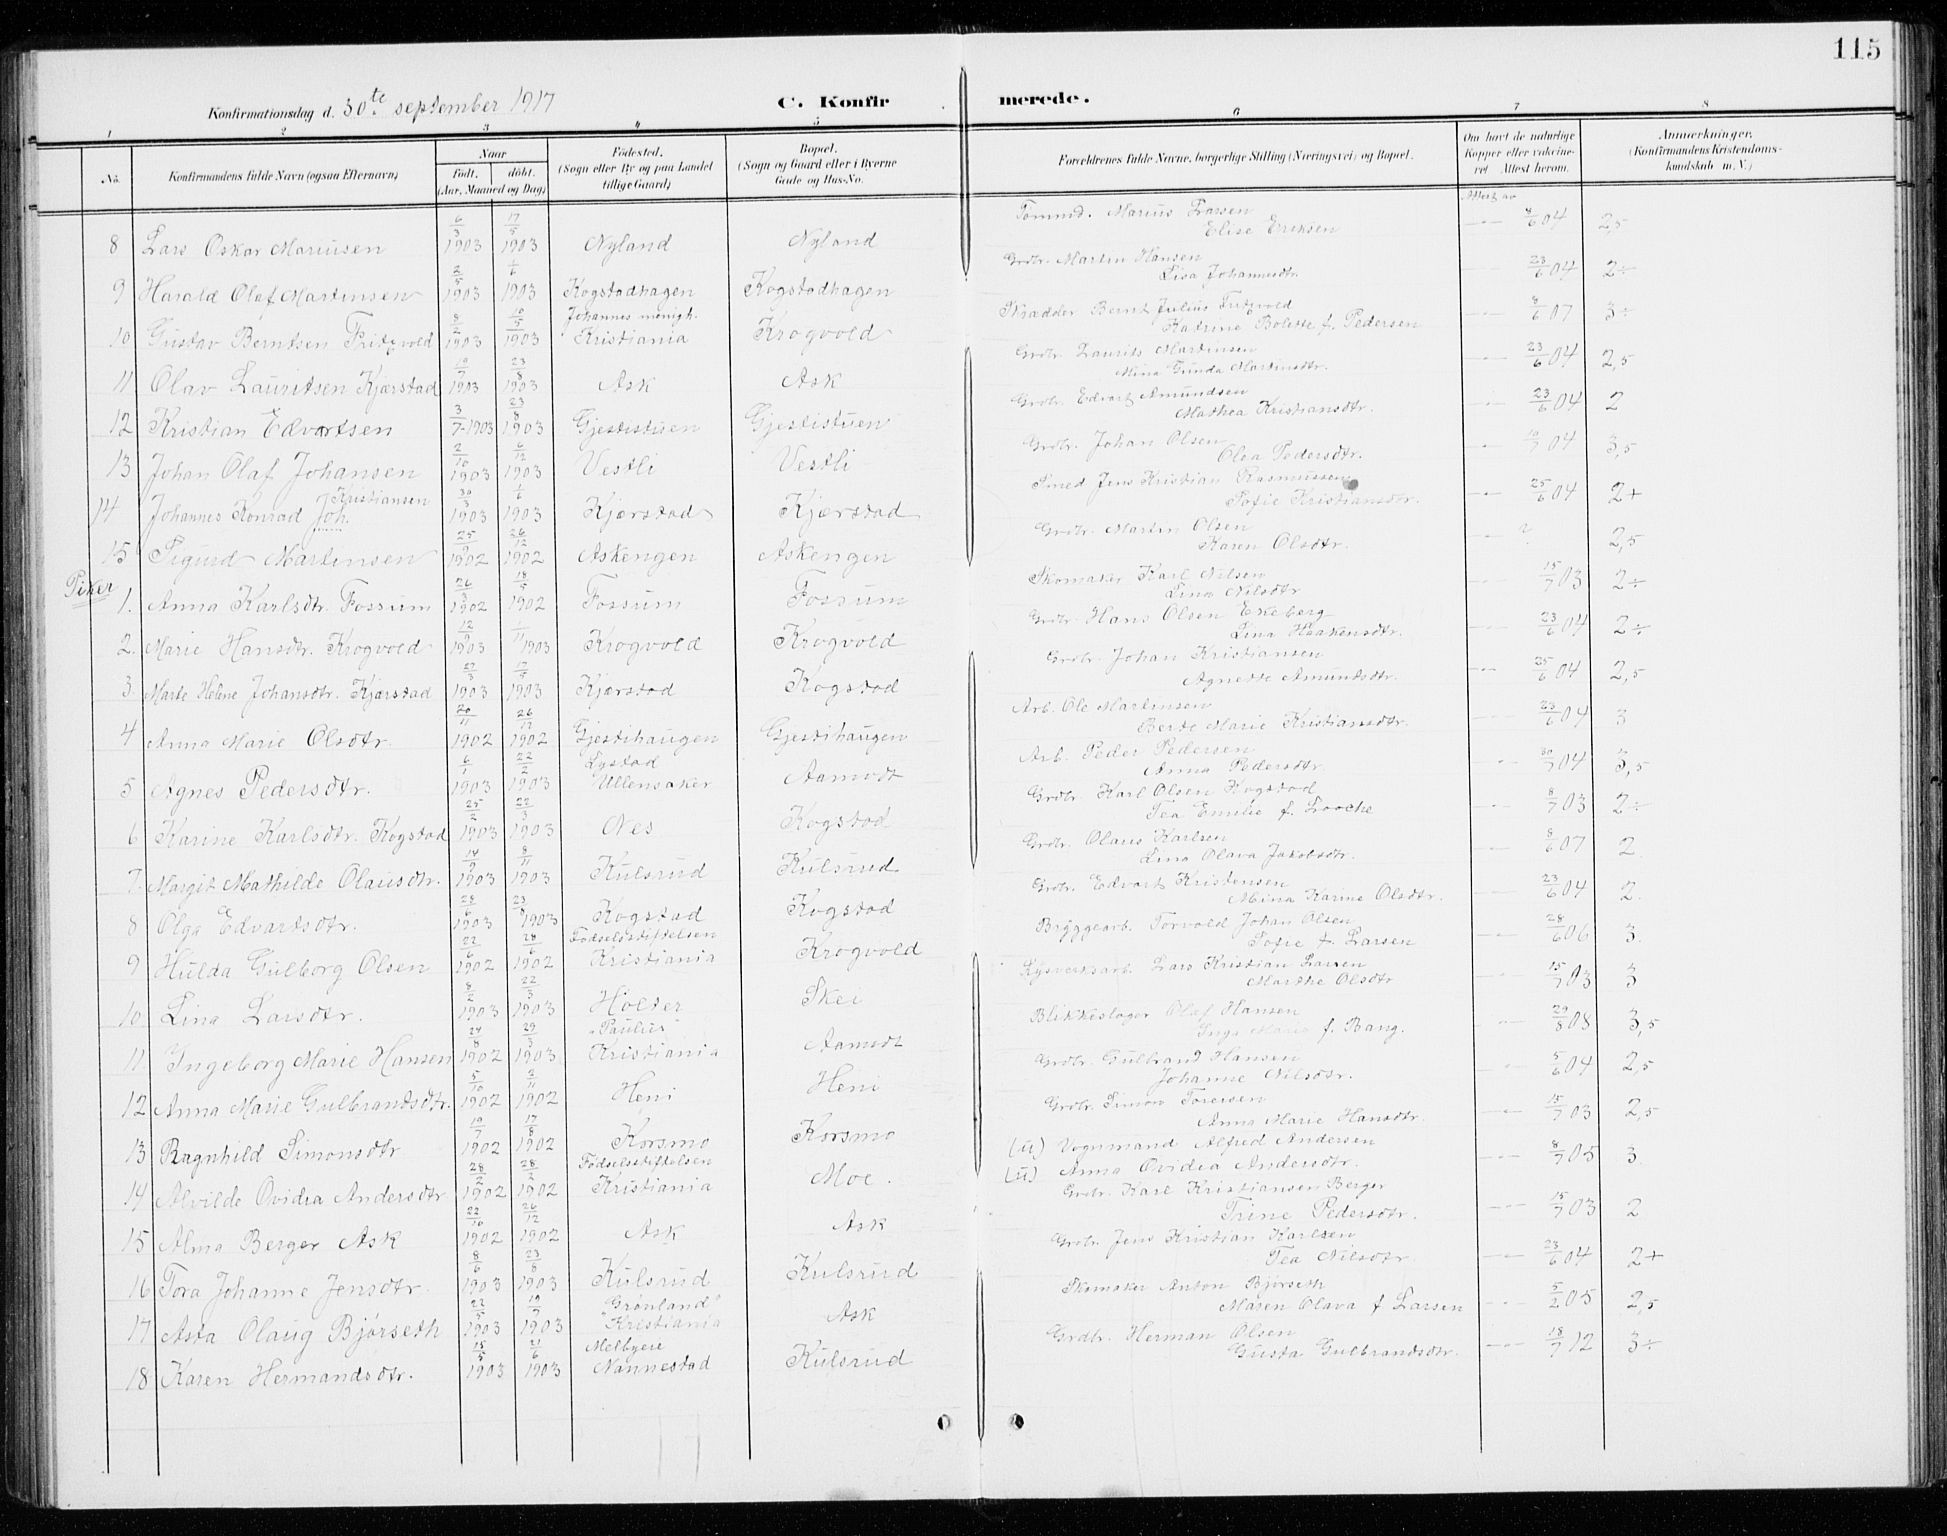 115
Konfirmationsdag d. 30te september 1917
C. Konfirmerede.
1 2 3 4 5 6 7 8
No. Konfirmandens fulde Navn (ogsaa Efternavn) Naar Født. døbt. (Aar, Maaned og Dag) Fødested. (Sogn eller By og paa Landet tillige Gaard) Bopæl. (Sogn og Gaard eller i Byerne Gade og Hus-No. Forældrenes fulde Navne, borgerlige Stilling (Næringsvei) og Bopæl. Om havt de naturlige Kopper eller vakcineret. Attest herom. Anmærkninger. (Konfirmandens Kristendomskundskab m. V.)
Attest av
8 Lars Oskar Mariusen 6/3 1903 17/5 1903 Nyland Nyland Tømmd. Marius Larsen Elise Eriksen 8/6 04 2,5
9 Harald Olaf Martinsen 2/5 1903 1/6 1903 Kogstadhagen Kogstadhagen Grdbr. Martin Hansen Lisa Johannesdtr. 23/6 04 2÷
10 Gustav Berntsen Fritzvold 8/2 1903 10/5 1903 Johannes menigh. Kristiania Krogvold Skrædder Bernt Julius Fritzvold Katrine Bolette f. Pedersen 8/6 07 3÷
11 Olav Lauritsen Kjærstad 19/7 1903 23/8 1903 Ask Ask Grdbr. Laurits Martinsen Mina Gunda Martinsdtr. 23/6 04 2,5
12 Kristian Edvartsen 3/7 1903 23/8 1903 Gjestistuen Gjestistuen Grdbr. Edvart Amundsen Mathea Kristiansdtr. 23/6 04 2
13 Johan Olaf Johansen 2/10 1903 6/12 1903 Vestli Vestli Grdbr. Johan Olsen Olea Pedersdtr. 10/7 04 3,5
14 Johannes Konrad Joh. Kristiansen 30/3 1903 1/6 1903 Kjærstad Kjærstad Smed Jens Kristian Rasmussen Sofie Kristiansdtr. 25/6 04 2+
15 Sigurd Martinsen 25/9 1902 26/12 1902 Askengen Askengen Grdbr. Martin Olsen Karen Olsdtr. ? 2,5
Piker
1. Anna Karlsdtr. Fossum 26/3 1902 18/5 1902 Fossum Fossum Skomaker Karl Nilsen Lina Nilsdtr 15/7 03 2÷
2. Marie Hansdtr. Krogvold 12/9 1903 1/11 1903 Krogvold Krogvold Grdbr. Hans Olsen Ekeberg Lina Haakensdtr. 23/6 04 2÷
3. Marte Helene Johansdtr. Kjærstad 27/3 1903 17/5 1903 Kjærstad Kogstad Grdbr. Johan Kristiansen Agnette Amundsdtr. 25/6 04 2,5
4 Anna Marie Olsdtr. 20/11 1902 26/12 1902 Gjestihaugen Gjestihaugen Arb. Ole Martinsen Berte Marie Kristiansdtr. 23/6 04 3
5 Agnes Pedersdtr. 6/1 1903 22/2 1903 Lystad Ullensaker Aamodt Arb. Peder Pedersen Anna Pedersdtr. 30/7 04 3,5
6 Karine Karlsdtr. Kogstad 25/2 1903 22/3 1903 Nes Kogstad Grdbr. Karl Olsen Kogstad Tea Emilie f. Looche 8/7 03 2÷
7. Margit Mathilde Olausdtr. 14/9 1903 8/11 1903 Kulsrud Kulsrud Grdbr. Olaus Karlsen Lina Olava Jakobsdtr. 8/6 07 2
8 Olga Edvartsdtr. 28/6 1903 23/8 1903 Kogstad Kogstad Grdbr. Edvart Kristensen Mina Karine Olsdtr. 23/6 04 2.
9 Hulda Gulborg Olsen 22/6 1902 28/6 1902 Fødselsstiftelsen Kristiania Krogvold Bryggearb. Torvald Johan Olsen Sofie f. Larsen 28/6 06 3.
10 Lina Larsdtr. 8/2 1903 22/3 1903 Holter Skei Lysverksarb. Lars Kristian Larsen Marthe Olsdtr 15/7 03 3
11. Ingeborg Marie Hansen 24/8 1902 29/3 1903 "Paulus" Kristiania Aamodt Blikkeslager Olaf Hansen Inga Marie f. Bang. 29/8 08 3,5
12 Anna Marie Gulbrandsdtr. 5/10 1902 2/11 1902 Heni Heni Grdbr. Gulbrand Hansen Johanne Nilsdtr. 5/6 04 2,5
13 Ragnhild Simonsdtr 19/7 1902 17/8 1902 Korsmo Korsmo Grdbr. Simon Toresen Anna Marie Hansdtr. 15/7 03 2,5
14 Alvilde Ovidia Andersdtr 28/2 1902 28/2 1902 Fødselsstiftelsen Kristiania Moe. (u) Vognmand Alfred Andersen (u) Anna Ovidia Andersdtr. 8/7 05 3.
15 Alma Berger Ask 22/10 1902 26/12 1902 Ask Ask Grdbr. Karl Kristiansen Berger Trine Pedersdtr. 15/7 03 2
16 Tora Johanne Jensdtr. 8/6 1903 23/8 1903 Kulsrud Kulsrud Grdbr. Jens Kristian Karlsen Tea Nilsdtr. 23/6 04 2+
17 Asta Olaug Bjørseth 22/5 1903 19/7 1903 "Grønland" Kristiania Ask Skomaker Anton Bjørseth Maren Olava f Larsen 5/2 05 2,5
18 Karen Hermandsdtr. 15/5 1903 21/6 1903 Melbyeie Nannestad Kulsrud Grdbr. Herman Olsen Gusta Gulbrandsdtr. 18/7 12 3÷